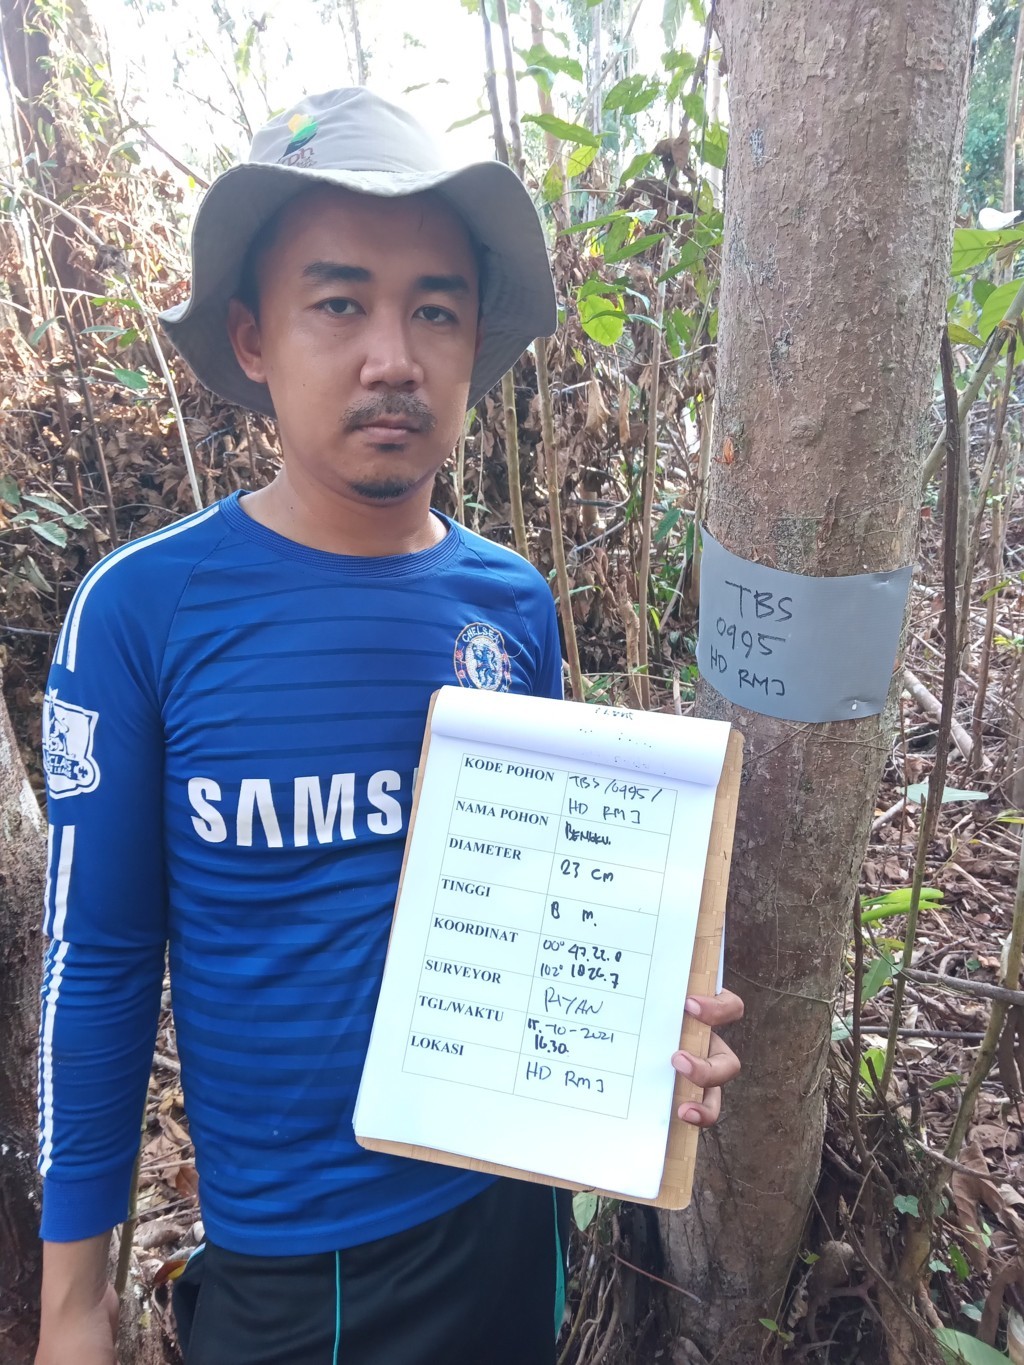 CHELSEA
SAMS
TBS
0995
HD RMJ
KODE POHON TBS/0995/
HD RMJ
NAMA POHON
DIAMETER 23 cm
TINGGI 8 m.
KOORDINAT 00° 47.22.0
102° 1026.7
SURVEYOR RIYAN
TGL/WAKTU 15-10-2021
16.30
LOKASI HD RMJ